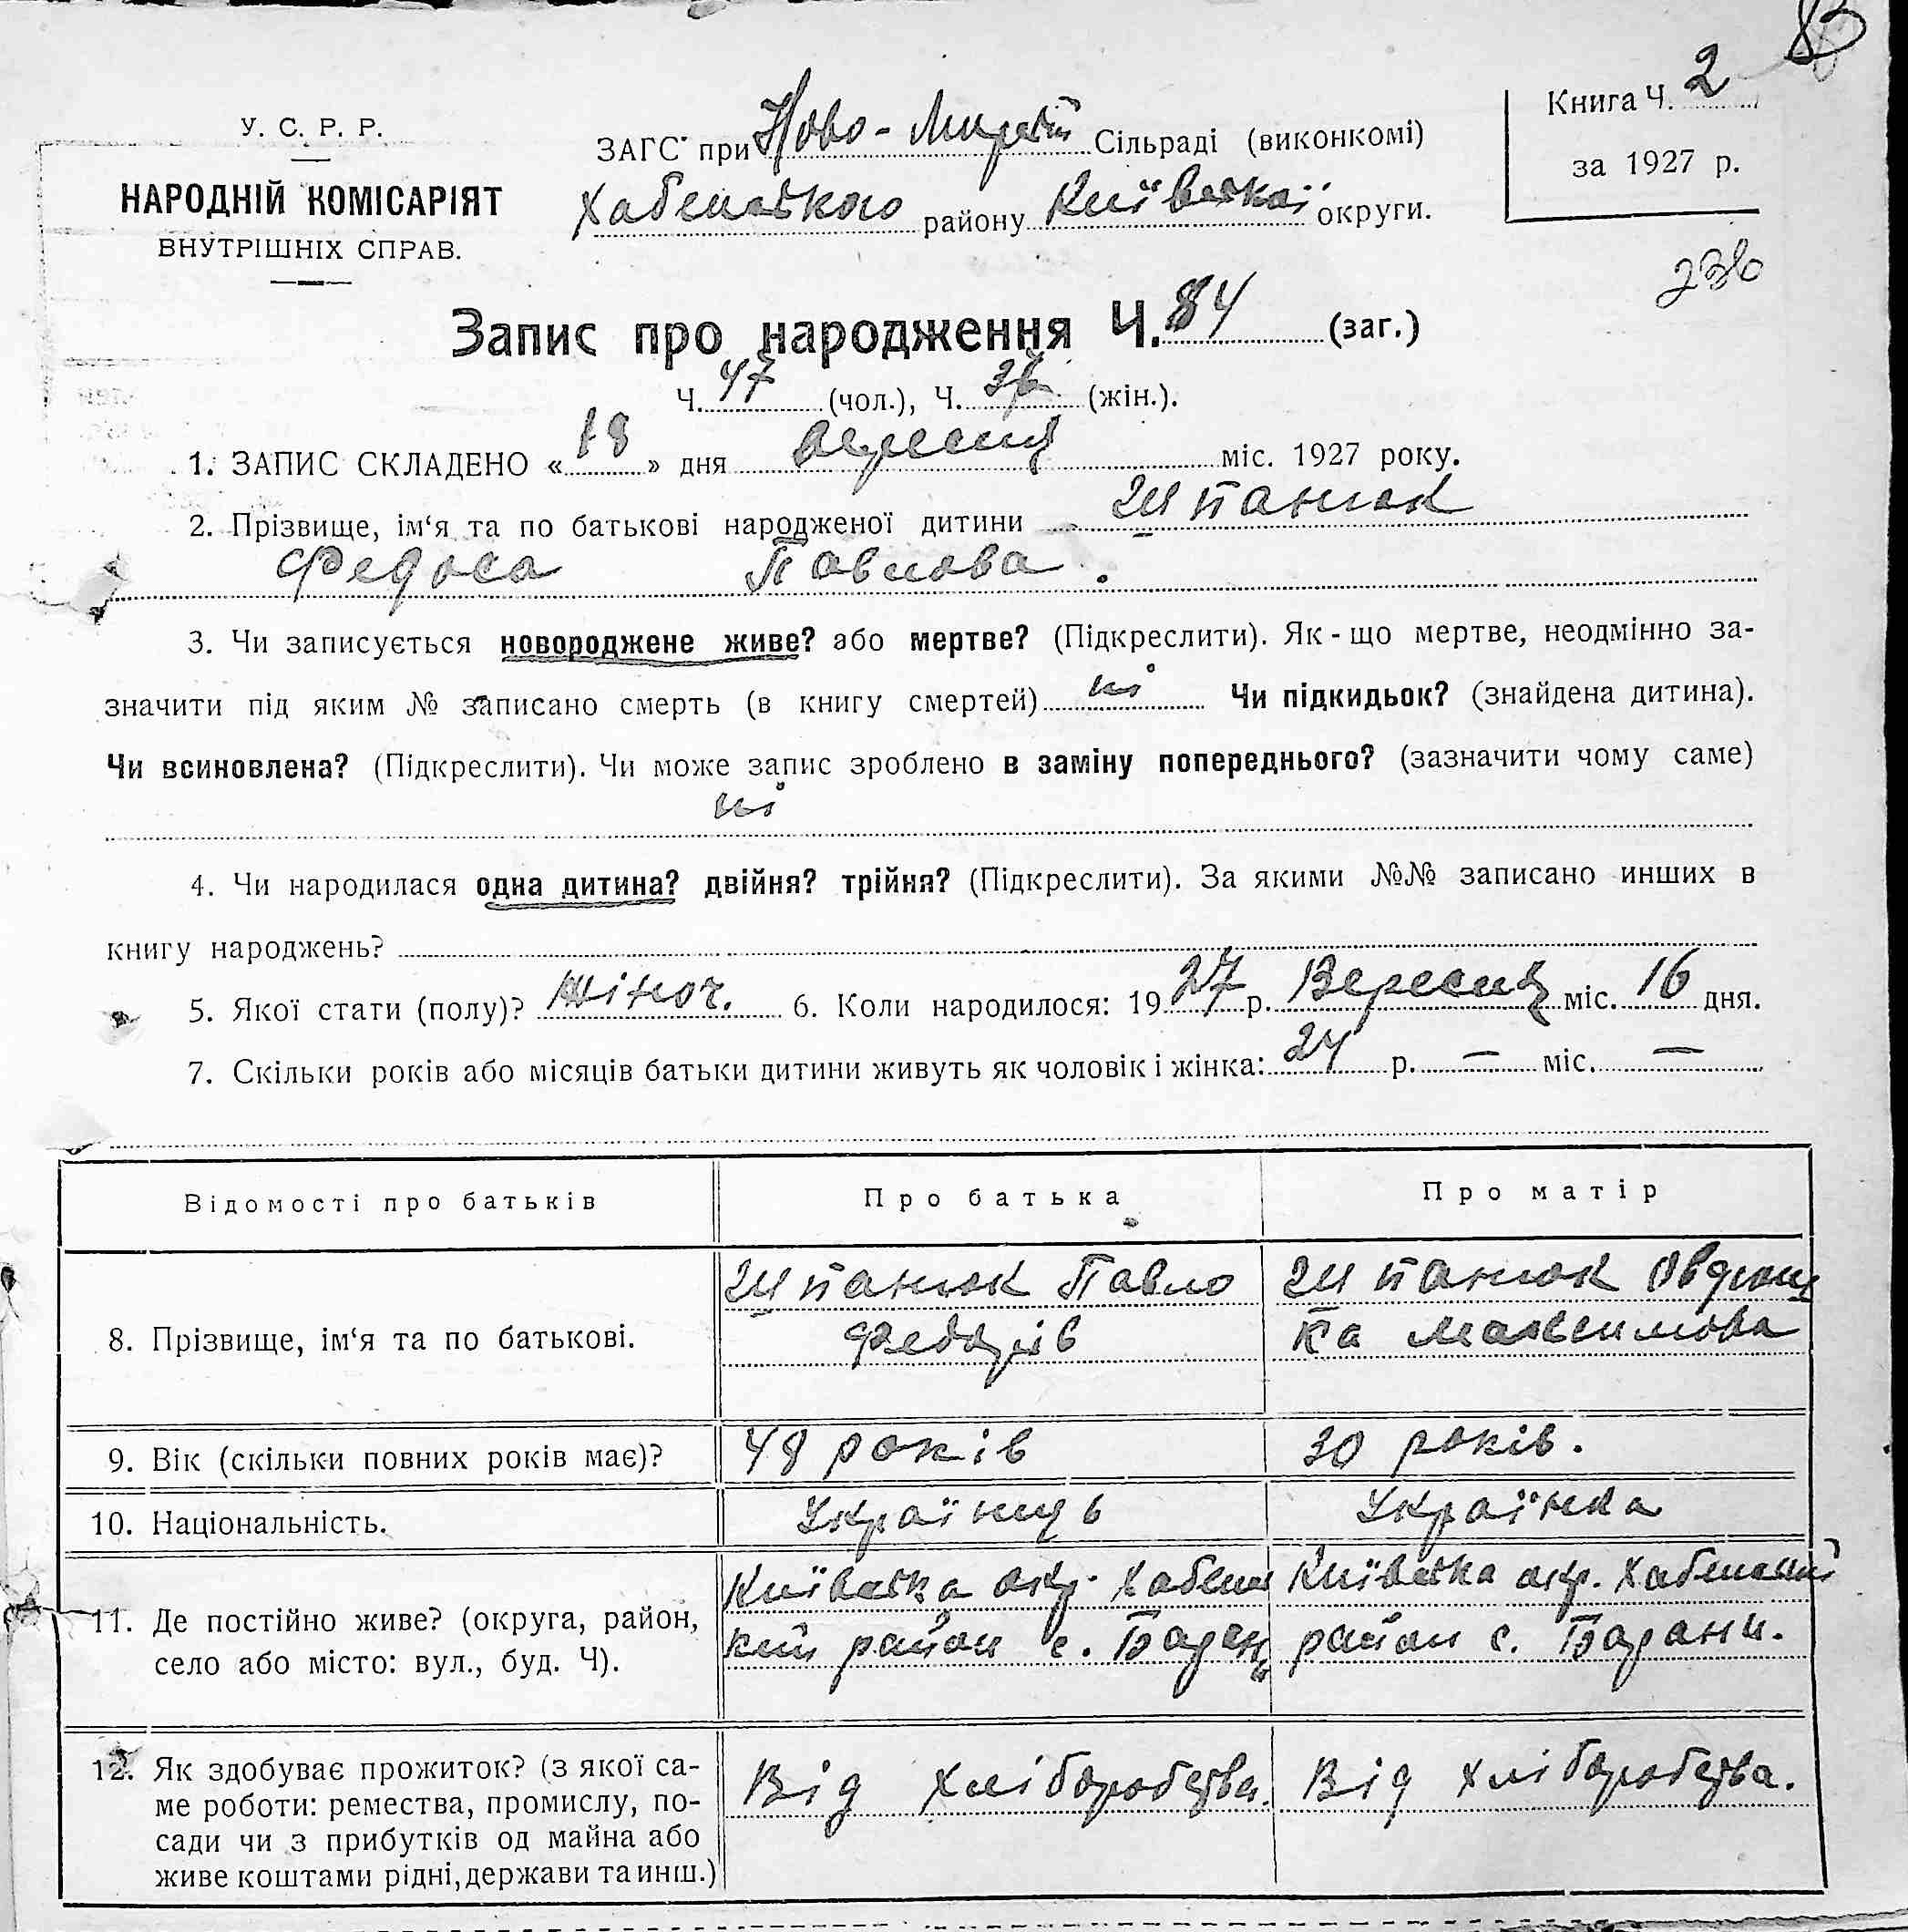 У. С. Р. Р.
НАРОДНІЙ КОМІСАРІЯТ
ВНУТРІШНІХ СПРАВ.
ЗАГС при Ново-Мирській Сільраді (виконкомі)
Хабенського району Київської округи.
Книга Ч. 2
за 1927 р.
Запис про народження Ч. 84 (заг.)
Ч. 47 (чол.), Ч. 37 (жін.).
1. ЗАПИС СКЛАДЕНО « 18 » дня вересня міс. 1927 року.
2. Прізвище, ім‘я та по батькові народженої дитини Шпанюк
Федоса Павлова.
3. Чи записується новороджене живе? або мертве? (Підкреслити). Як-що мертве, неодмінно за-
значити під яким № записано смерть (в книгу смертей) ні Чи підкидьок? (знайдена дитина).
Чи всиновлена? (Підкреслити). Чи може запис зроблено в заміну попереднього? (зазначити чому саме)
ні
4. Чи народилася одна дитина? двійня? трійня? (Підкреслити). За якими №№ записано инших в
книгу народжень?
5. Якої стати (полу)? Жіноч. 6. Коли народилося: 1927 р. Вересня міс. 16 дня.
7. Скільки років або місяців батьки дитини живуть як чоловік і жінка: 24 р. — міс. —
Відомості про батьків
Про батька
Про матір
8. Прізвище, ім‘я та по батькові.
Шпанюк Павло
Федорів
Шпанюк Овдюш
ка Максимова
9. Вік (скільки повних років має)?
48 років
30 років.
10. Національність.
Українць
Українка
11. Де постійно живе? (округа, район,
село або місто: вул., буд. Ч).
Київська окр. Хабенс
кий район с. Барани
Київська окр. Хабенський
район с. Барани.
12. Як здобуває прожиток? (з якої са-
ме роботи: ремества, промислу, по-
сади чи з прибутків од майна або
живе коштами рідні, держави та инш.)
Від хліборобства.
Від хліборобства.